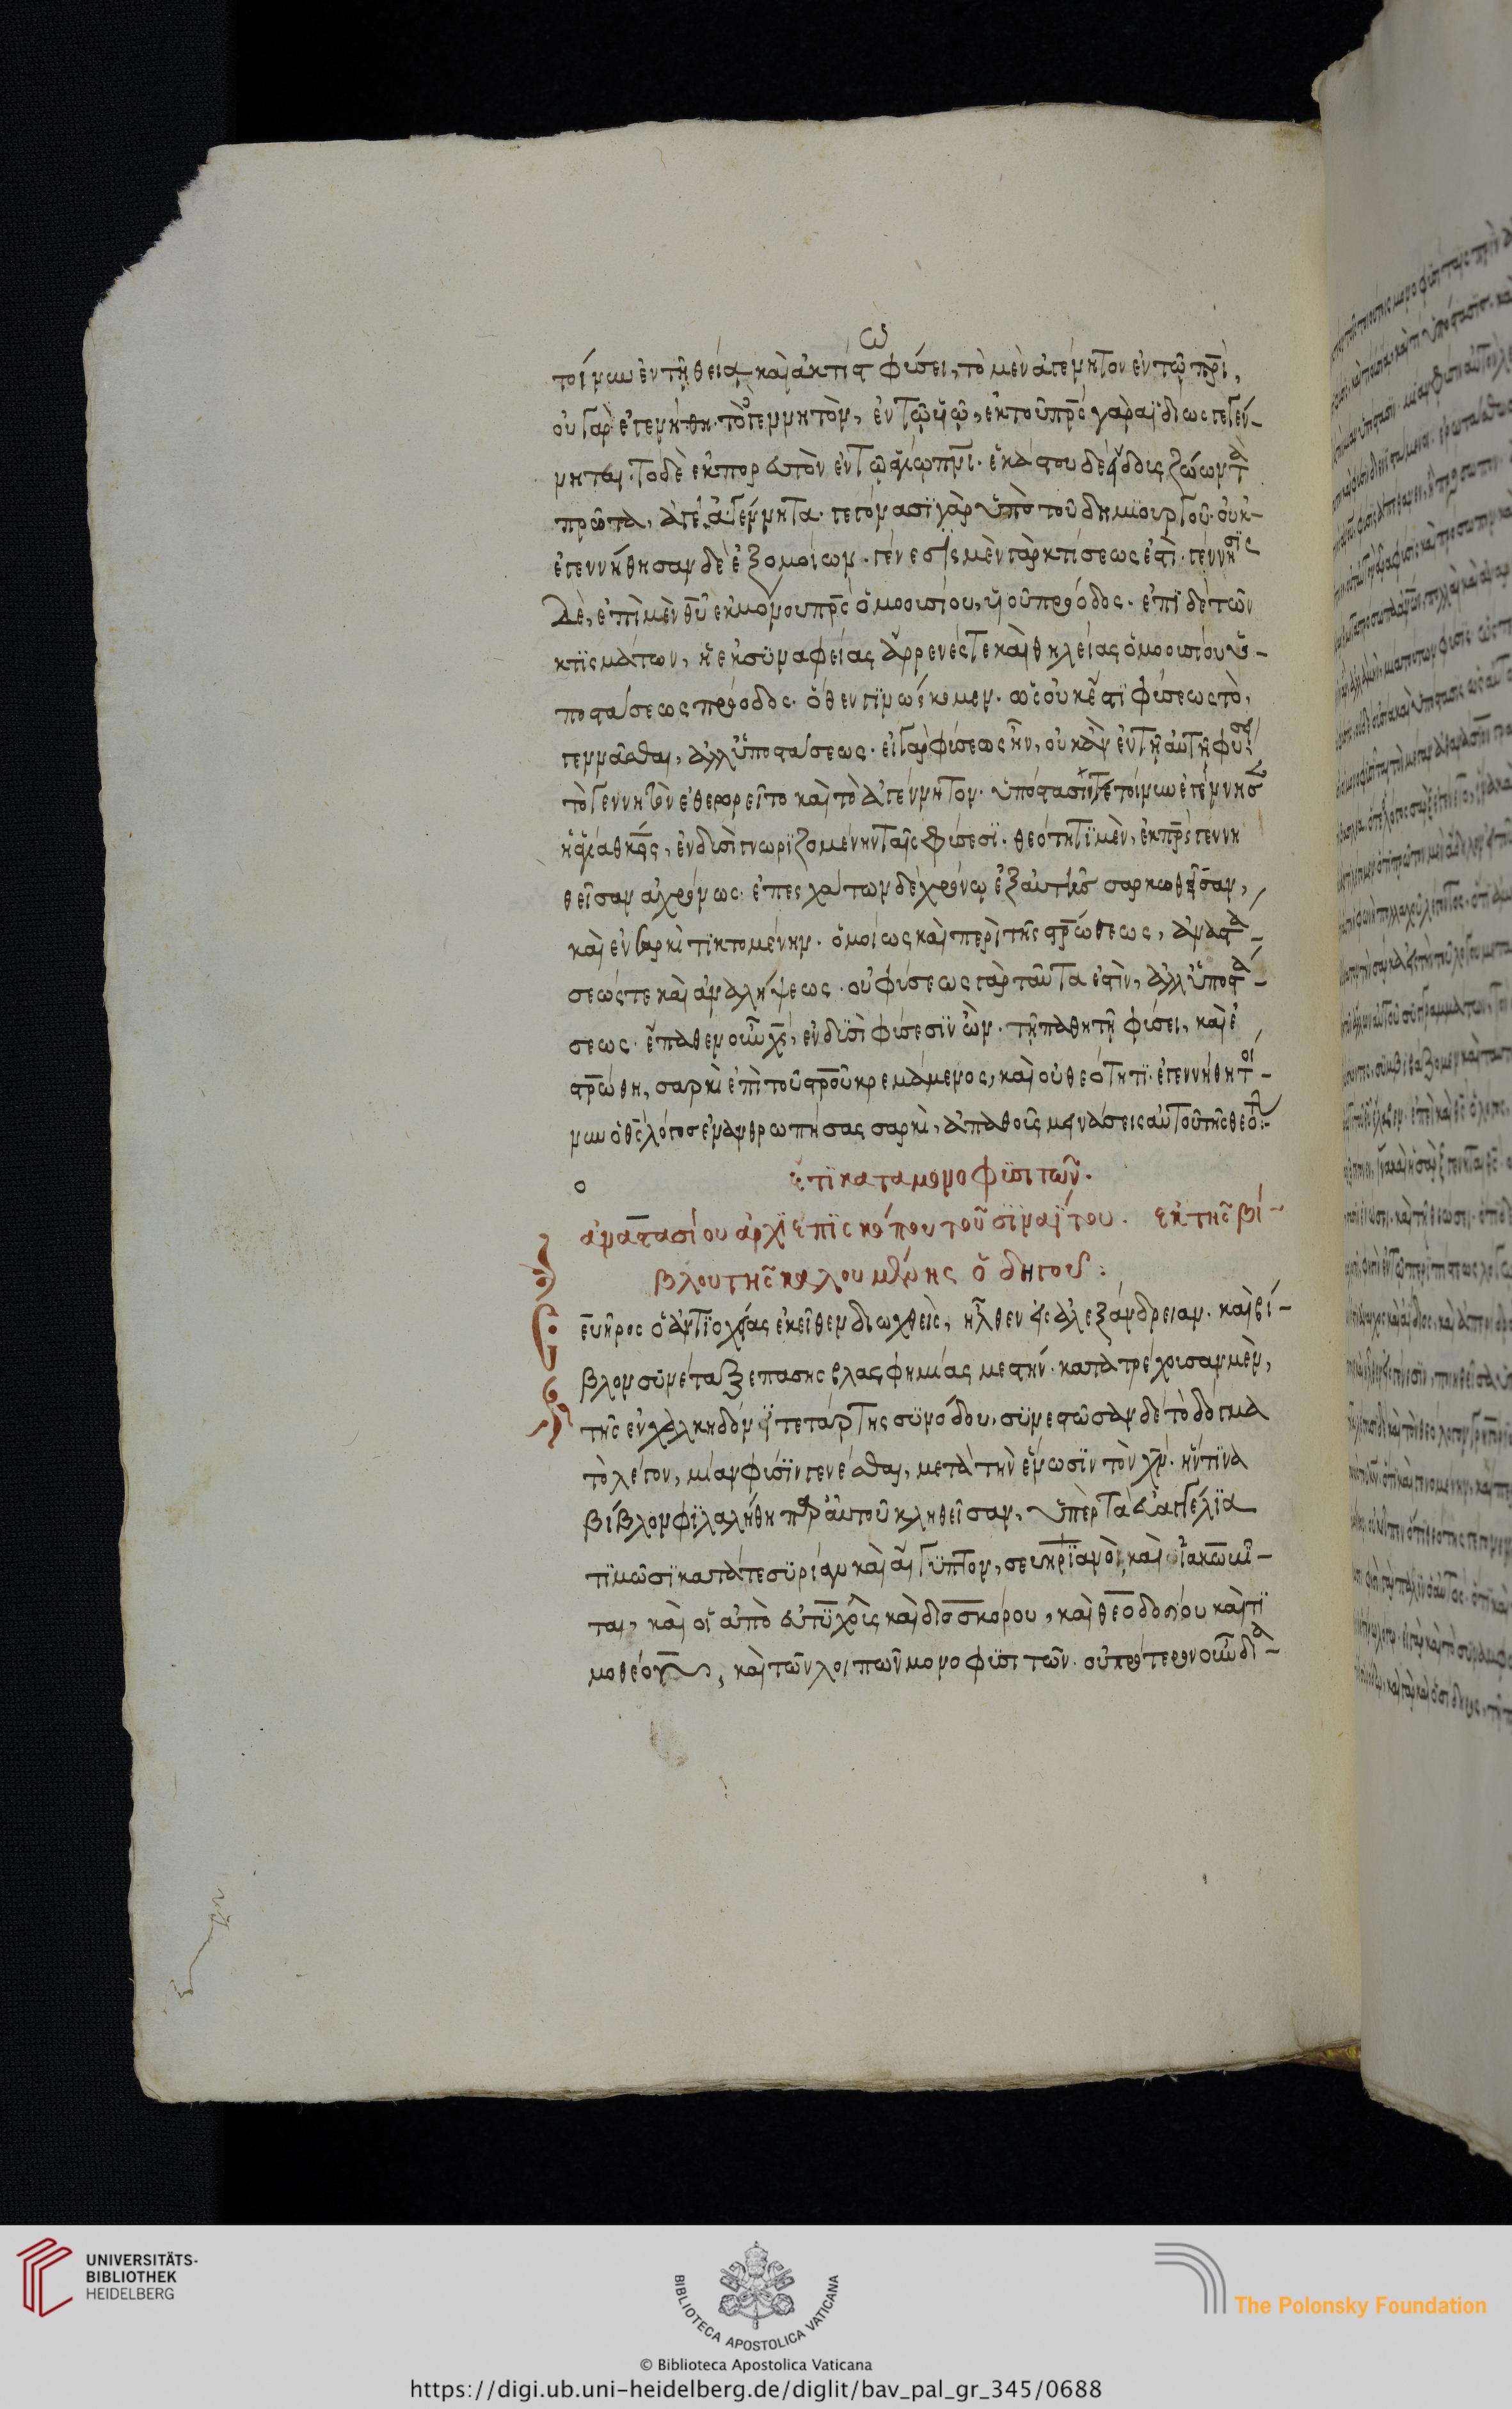 τοίνυν ἐν τῇ θεία καὶ ἀκτίστω φύσει, τὸ μὲν ἀγέννητον ἐν τῷ πρι,
οὐ γὰρ ἐγεννήθη. τὸ γεννητὸν, ἐν τῷ υἱῷ, ἐκ τοῦ πρς γὰρ ἀϊδίως γεγέν-
νηται. τὸ δὲ ἐκπορευτὸν ἐν τῷ ἁγίω πνι. ἑκάστου δὲ εἴδους ζώων τὰ
πρῶτα, ἀγέννητα. γεγόνασϊ γὰρ ὑπὸ τοῦ δημϊουργοῦ. οὐκ
ἐγεννήθησαν δὲ ἐξ ὁμοίων. γένεσϊς μὲν γὰρ κτίσεως ἐστὶ. γέννησϊς
δὲ, ἐπὶ μὲν θυ ἐκ μόνου πρς ὁμοουσίου, υἱοῦ πρόοδος. ἐπϊ δὲ τῶν
κτϊσμάτων, ἡ ἐκ συναφείας ἄρρενός τε καὶ θηλείας ὁμοουσίου ὑ-
ποστάσεως πρόοδος. ὅθεν γϊνώσκομεν. ὡς οὐκ ἔστϊ φύσεως τὸ,
γεννᾶσθαι, ἀλλ' ὑποστάσεως. εἰ γὰρ φύσεως ἦν, οὐκ ἂν ἐν τῇ αὐτῇ φύσει
τὸ γεννητὸν ἐθεωρεῖτο καὶ τὸ ἀγέννητον. ὑπόστασϊν τοίνυν ἐγέννησεν
ἡ ἁγία θκος, ἐν δυσὶ γνωρϊζομένην ταῖς φύσεσϊ. θεότητϊ μὲν, ἐκ πρς γεννη
θεῖσαν ἀχρόνως. ἐπ' ἐσχάτων δὲ χρόνω ἐξ αὐτῆς σαρκωθεῖσαν,
καὶ ἐν σαρκὶ τϊκτομένην. ὁμοίως καὶ περὶ τῆς στρώσεως, ἀναστά-
σεώς τε καὶ ἀναλήψεως. οὐ φύσεως γὰρ ταῦτα ἐστὶν, ἀλλ' ὑποστά-
σεως. ἔπαθεν οὖν χς, ἐν δυσὶ φύσεσϊν ὢν. τῇ παθητῇ φύσει, καὶ ἐ
στρώθη, σαρκὶ ἐπὶ τοῦ στροῦ κρεμάμενος, καὶ οὐ θεότητϊ. ἐγεννήθη τοί-
νυν ὁ θς λόγος ἐνανθρωπήσας σαρκὶ,
ἔτϊ κατα μονοφϋσιτῶν.
ἀναστασίου ἀρχϊεπϊσκόπου τοῦ σϊναΐτου. ἐκ τῆς βί-
βλου τῆς καλουμένης ὁδηγοῦ:
ευῆρος ὁ ἀντϊοχείας ἐκεῖθεν διωχθεὶς, ἦλθεν εἰς ἀλεξάνδρειαν. καὶ βί-
βλον συνέταξε πασης βλασφημίας μεστήν. κατατρέχουσαν μὲν,
τῆς ἐν χαλκηδόνϊ τετάρτης συνόδου. συνεστῶσαν δὲ τὸ δόγμα
τὸ λέγον, μίαν φύσϊν γενέσθαι, μετὰ τὴν ἕνωσϊν τὸν χν. ἥντϊνα
βίβλον φϊλαλήθη παρ' αὐτοῦ κληθεῖσαν, ὑπὲρ τὰ εὐαγγέλϊα
τϊμῶσϊ κατά τε συρίαν καὶ αἴγυπτον, σευηρϊανοὶ, καὶ ἰακωβῖ-
ται, καὶ οἱ ἀπὸ εὐτυχοῦς καὶ διοσκόρου, καὶ θεοδοσίου καὶ τϊ
μοθέου, καὶ τῶν λοιπῶν μονοφϋσιτῶν. οὐ πρότερον οὖν δι-
UNIVERSITÄTS-
BIBLIOTHEK
HEIDELBERG
BIBLIOTECA APOSTOLICA VATICANA
The Polonsky Foundation
© Biblioteca Apostolica Vaticana
https://digi.ub.uni-heidelberg.de/diglit/bav_pal_gr_345/0688